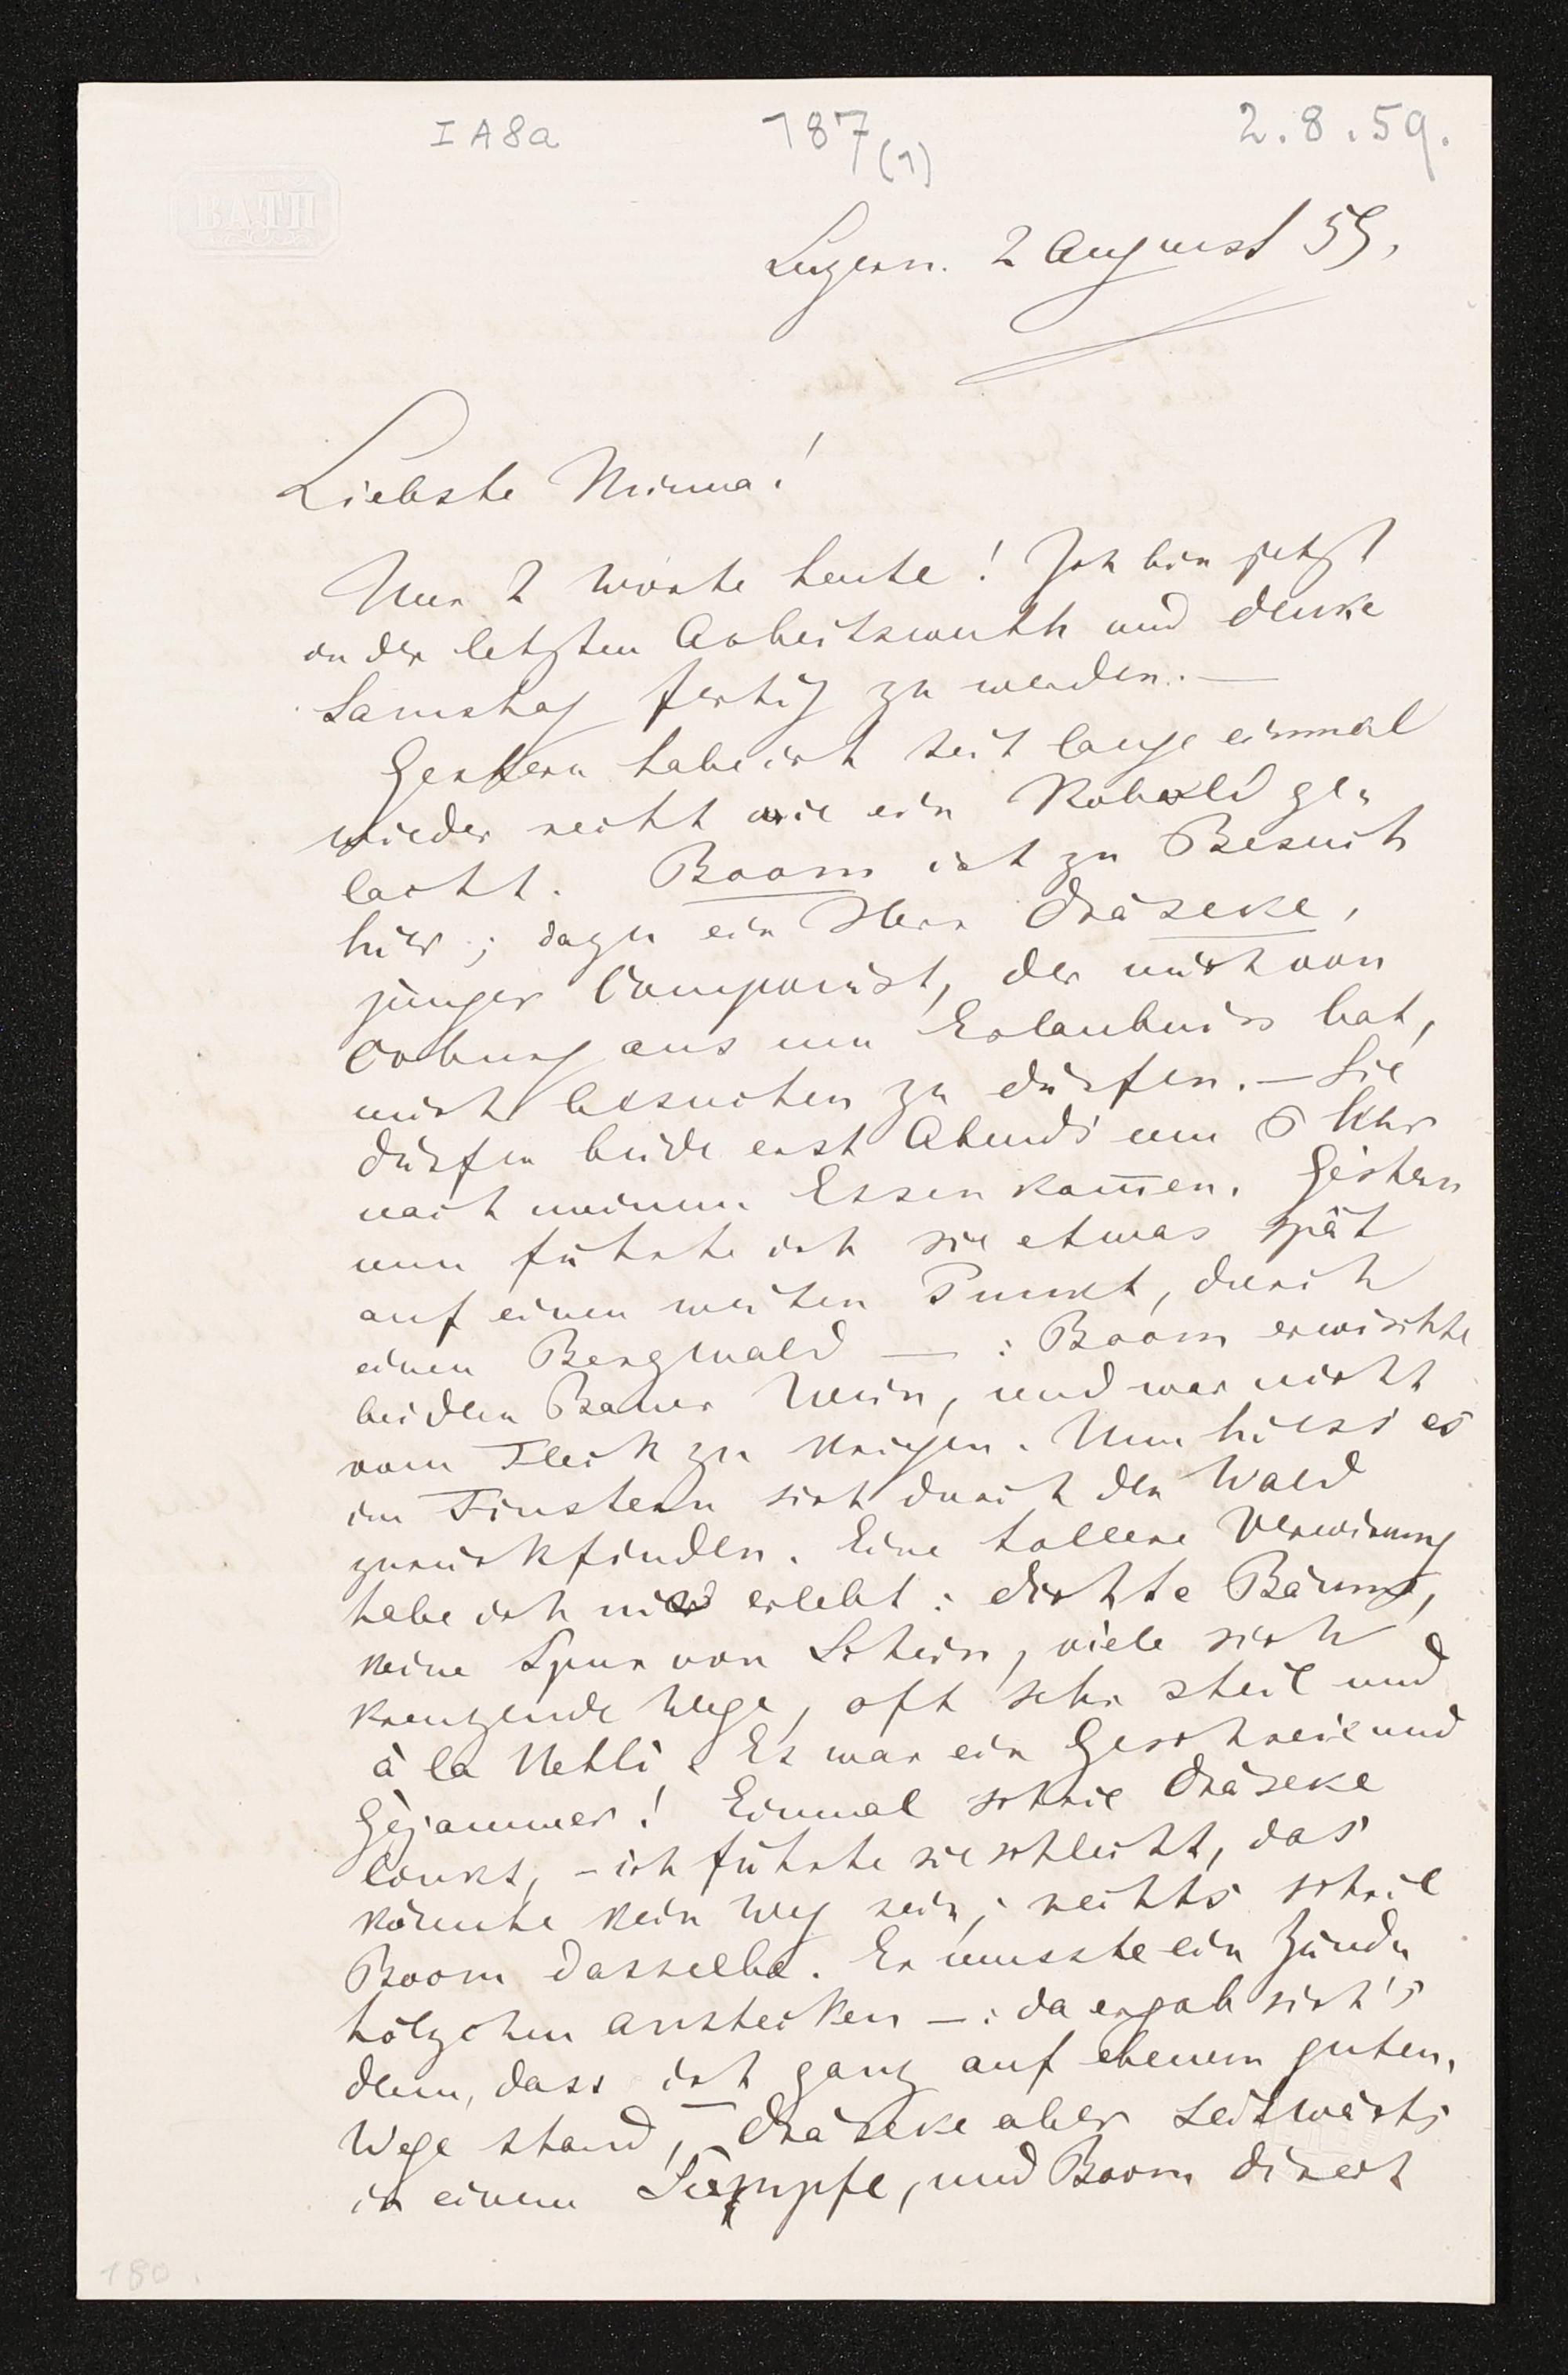 I A 8a 187 (1) 2.8.59.
BATH
Luzern. 2 August 59.
Liebste Minna!
Nur 2 Worte heute! Ich bin jetzt
in der letzten Arbeitswuth und denke
Samstag fertig zu werden. —
Gestern habe ich seit lange einmal
wieder recht wie ein Kobold ge-
lacht. Baom ist zu Besuch
hier; dazu ein Herr Dräseke,
junger Componist, der mich von
Coburg aus um Erlaubniss bat,
mich besuchen zu dürfen. — Sie
dürfen beide erst Abends um 6 Uhr
nach meinem Essen kom̅en. Gestern
nun führte ich sie etwas spät
auf einen weiten Punkt, durch
einen Bergwald — : Baom erwischte
bei dem Bauer Wein, und war nicht
vom Fleck zu kriegen. Nun hiess es
im Finstern sich durch den Wald
zurückfinden. Eine tollere Verwirrung
habe ich nie erlebt: dichte Bäume,
keine Spur von Schein, viele sich
kreuzende Wege, oft sehr steil und
à la Uetli. Es war ein Geschrei und
Gejammer! Einmal schrie Dräseke
links, – ich führte sie schlecht, das
könnte kein Weg sein; rechts schrie
Baom dasselbe. Er musste ein Zünd-
hölzchen anstecken —: da ergab sich's
denn, dass ich ganz auf ebenem guten,
Wege stand, Dräseke aber seitwärts
in einem Sumpfe, und Baom direct
180.